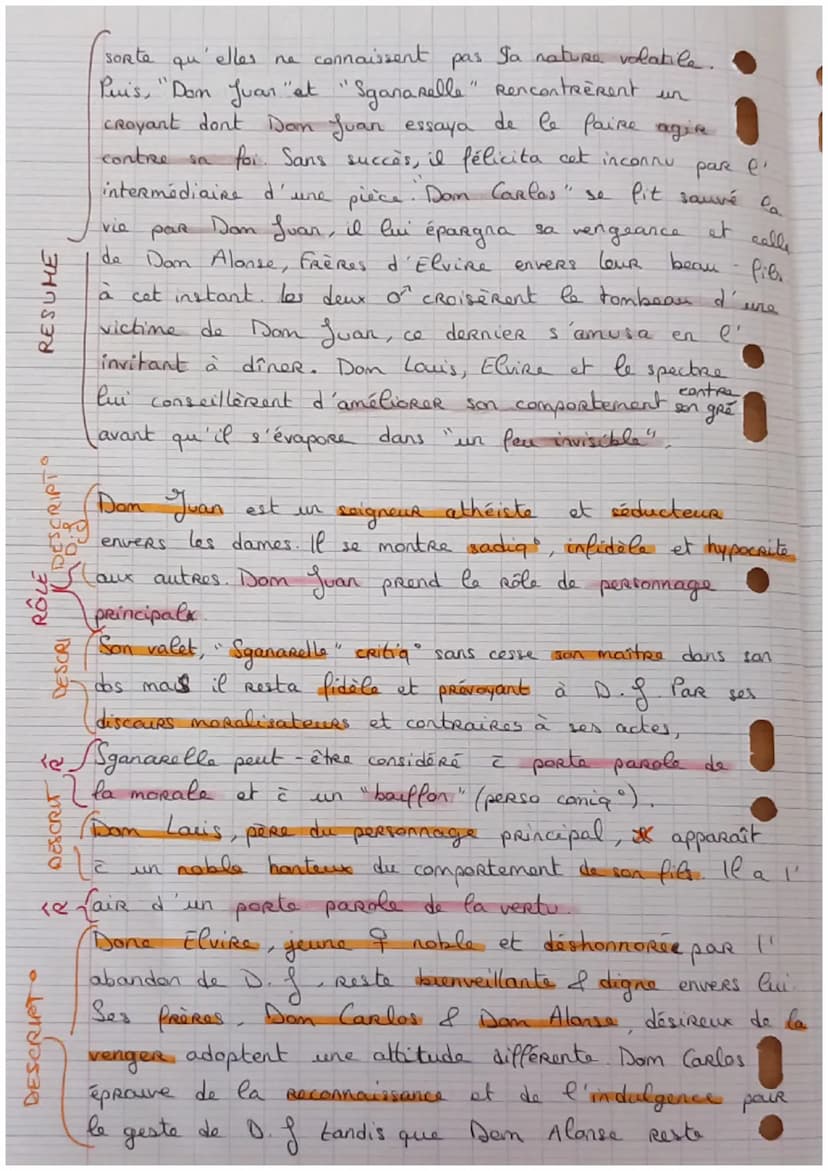 sorte qu'elles ne connaissent pas sa nature volatile.
Puis, "Dom Juan" et "Sganarelle" rencontrèrent un
croyant dont Dom Juan essaya de le faire agir
contre sa foi. Sans succès, il félicita cet inconnu par l'
intermédiaire d'une pièce. "Dom Carlos" se fit sauvé la
vie par Dom Juan, il lui épargna sa vengeance et celle
de Dom Alonse, frères d'Elvire envers leur beau-fils
à cet instant. les deux ♂ croisèrent le tombeau d'une
victime de Dom Juan, ce dernier s'amusa en l'
invitant à dîner. Dom Louis, Elvire et le spectre
lui conseillèrent d'améliorer son comportement contre son gré
avant qu'il s'évapore dans "un feu invisible".
RESUME
Dom Juan est un seigneur athéiste et séducteur
envers les dames. Il se montre sadiq°, infidèle et hypocrite
aux autres. Dom Juan prend le rôle de personnage
principal.
DESCRIPT°
D.J
RÔLE
Son valet, "Sganarelle" critiq° sans cesse son maître dans son
dos mais il resta fidèle et prévoyant à D.J. Par ses
discours moralisateurs et contraires à ses actes,
DESCRI
Sganarelle peut-être considéré c̄ porte parole de
la morale et c̄ un "bouffon" (perso comiq°).
R
Dom Louis, père du personnage principal, apparaît
c̄ un noble honteux du comportement de son fils. Il a l'
DESCRIT
air d'un porte parole de la vertu.
R
Done Elvire, jeune ♀ noble et déshonnorée par l'
abandon de D.J, reste bienveillante & digne envers lui.
Ses frères, Dom Carlos & Dom Alonse, désireux de la
venger adoptent une attitude différente. Dom Carlos
éprouve de la reconnaissance et de l'indulgence pour
le geste de D.J tandis que Dom Alonse reste
DESCRIPT°